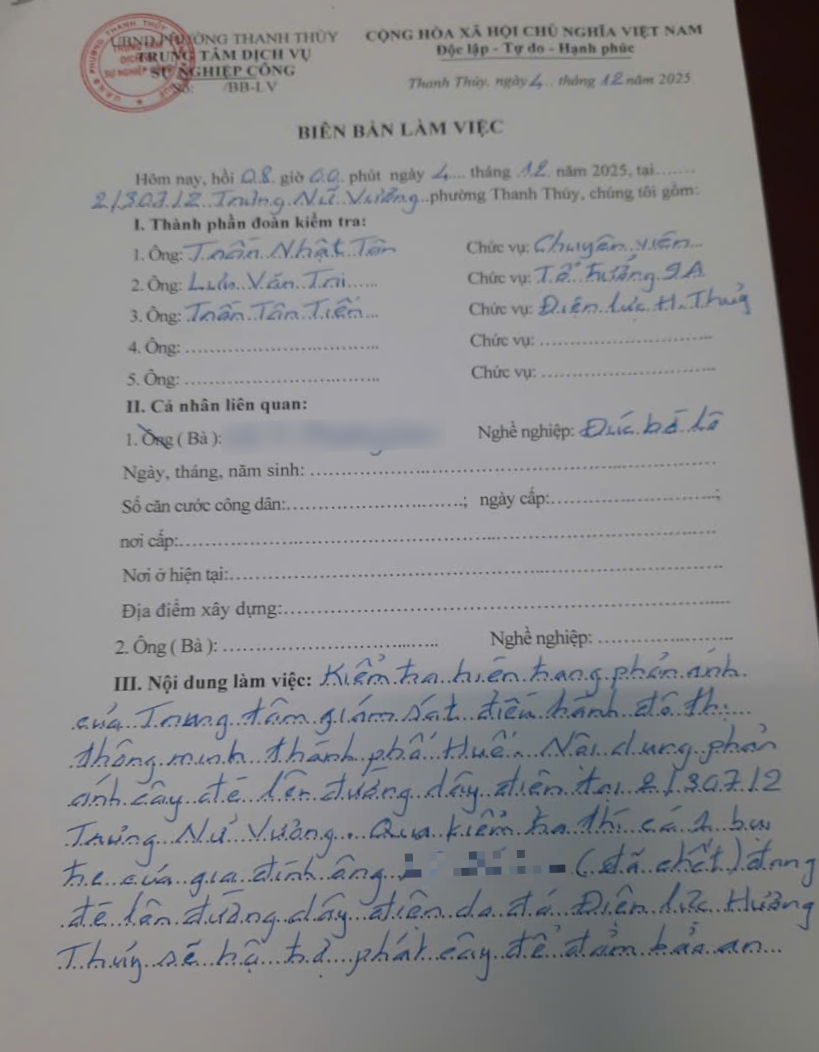 UBND PHƯỜNG THANH THỦY CỘNG HÒA XÃ HỘI CHỦ NGHĨA VIỆT NAM
TRUNG TÂM DỊCH VỤ Độc lập - Tự do - Hạnh phúc
SỰ NGHIỆP CÔNG
Số: /BB-LV Thanh Thủy, ngày 4 tháng 12 năm 2025
BIÊN BẢN LÀM VIỆC
Hôm nay, hồi 08 giờ 00 phút ngày 4 tháng 12 năm 2025, tại
2/307/2 Trưng Nữ Vương phường Thanh Thủy, chúng tôi gồm:
I. Thành phần đoàn kiểm tra:
1. Ông: Trần Nhật Tân Chức vụ: Chuyên viên
2. Ông: Văn Chức vụ: Tổ trưởng
3. Ông: Trần Tân Tiến Chức vụ: Điện lực H. Thuỷ
4. Ông: Chức vụ:
5. Ông: Chức vụ:
II. Cá nhân liên quan:
1. Ông ( Bà ): Nghề nghiệp: Đúc bờ lô
Ngày, tháng, năm sinh:
Số căn cước công dân: ; ngày cấp: ;
nơi cấp:
Nơi ở hiện tại:
Địa điểm xây dựng:
2. Ông ( Bà ): Nghề nghiệp:
III. Nội dung làm việc: Kiểm tra hiện trạng phản ánh
của Trung tâm giám sát điều hành đô thị
thông minh thành phố Huế. Nội dung phản
ánh cây đè lên đường dây điện tại 2/307/2
Trưng Nữ Vương. Qua kiểm tra thì có 1 bụi
tre của gia đình ông (đã chết) đang
đè lên đường dây điện do đó Điện lực Hương
Thủy sẽ hỗ trợ phát cây để đảm bảo an